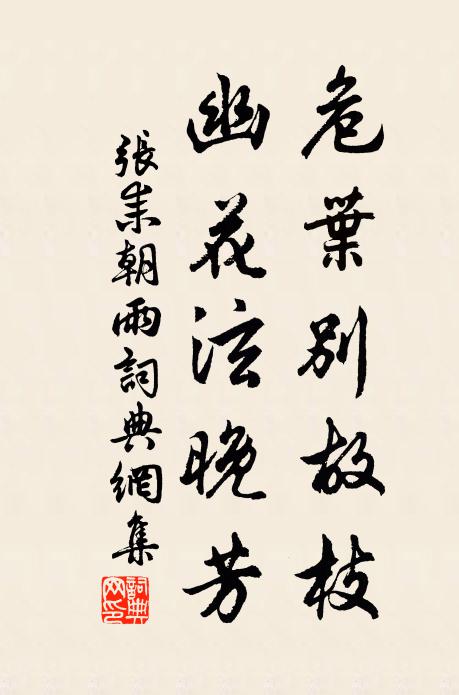 危葉別故枝
幽花泫晚芳
張耒朝雨詞典網集
詞典網印